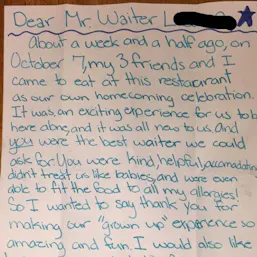 Dear Mr. Waiter L
About a week and a half ago, on
October 7, my 3 friends and I
came to eat at this restaurant
as our own homecoming celebration.
It was, an exciting experience for us to b
here alone, and it was all new to us. And
you were the best waiter we could
ask for. You were kind, helpful, accomadating
didn't treat us like babies, and were even
able to fit the food to all my allergies!
So I wanted to say thank you for
making our "grown up" experience so
amazing and fun. I would also like